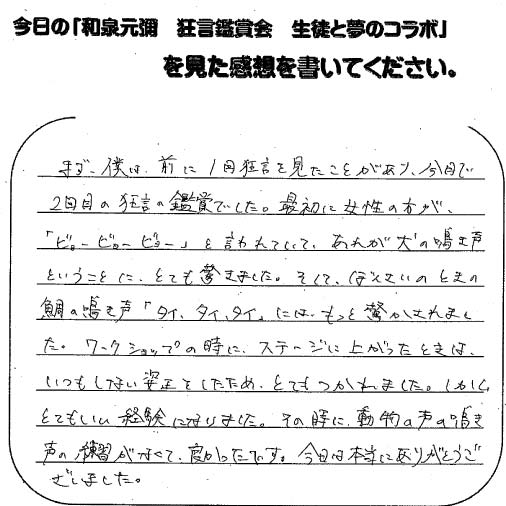 今日の「和泉元彌　狂言鑑賞会　生徒と夢のコラボ」
を見た感想を書いてください。
まず、僕は、前に1回狂言を見たことがあり、今回で
2回目の狂言の鑑賞でした。最初に女性の方が、
「ビョービョービョー」と言われていて、あれが犬の鳴き声
ということに、とても驚きました。そして、ぼんさいのときの
鯛の鳴き声「タイ、タイ、タイ」には、もっと驚かされまし
た。ワークショップの時に、ステージに上がったときは、
いつもしない姿正をしたため、とてもつかれました。しかし、
とてもいい経験になりました。その時に、動物の声の鳴き
声の練習がなくて、良かったです。今日は本当にありがとうご
ざいました。